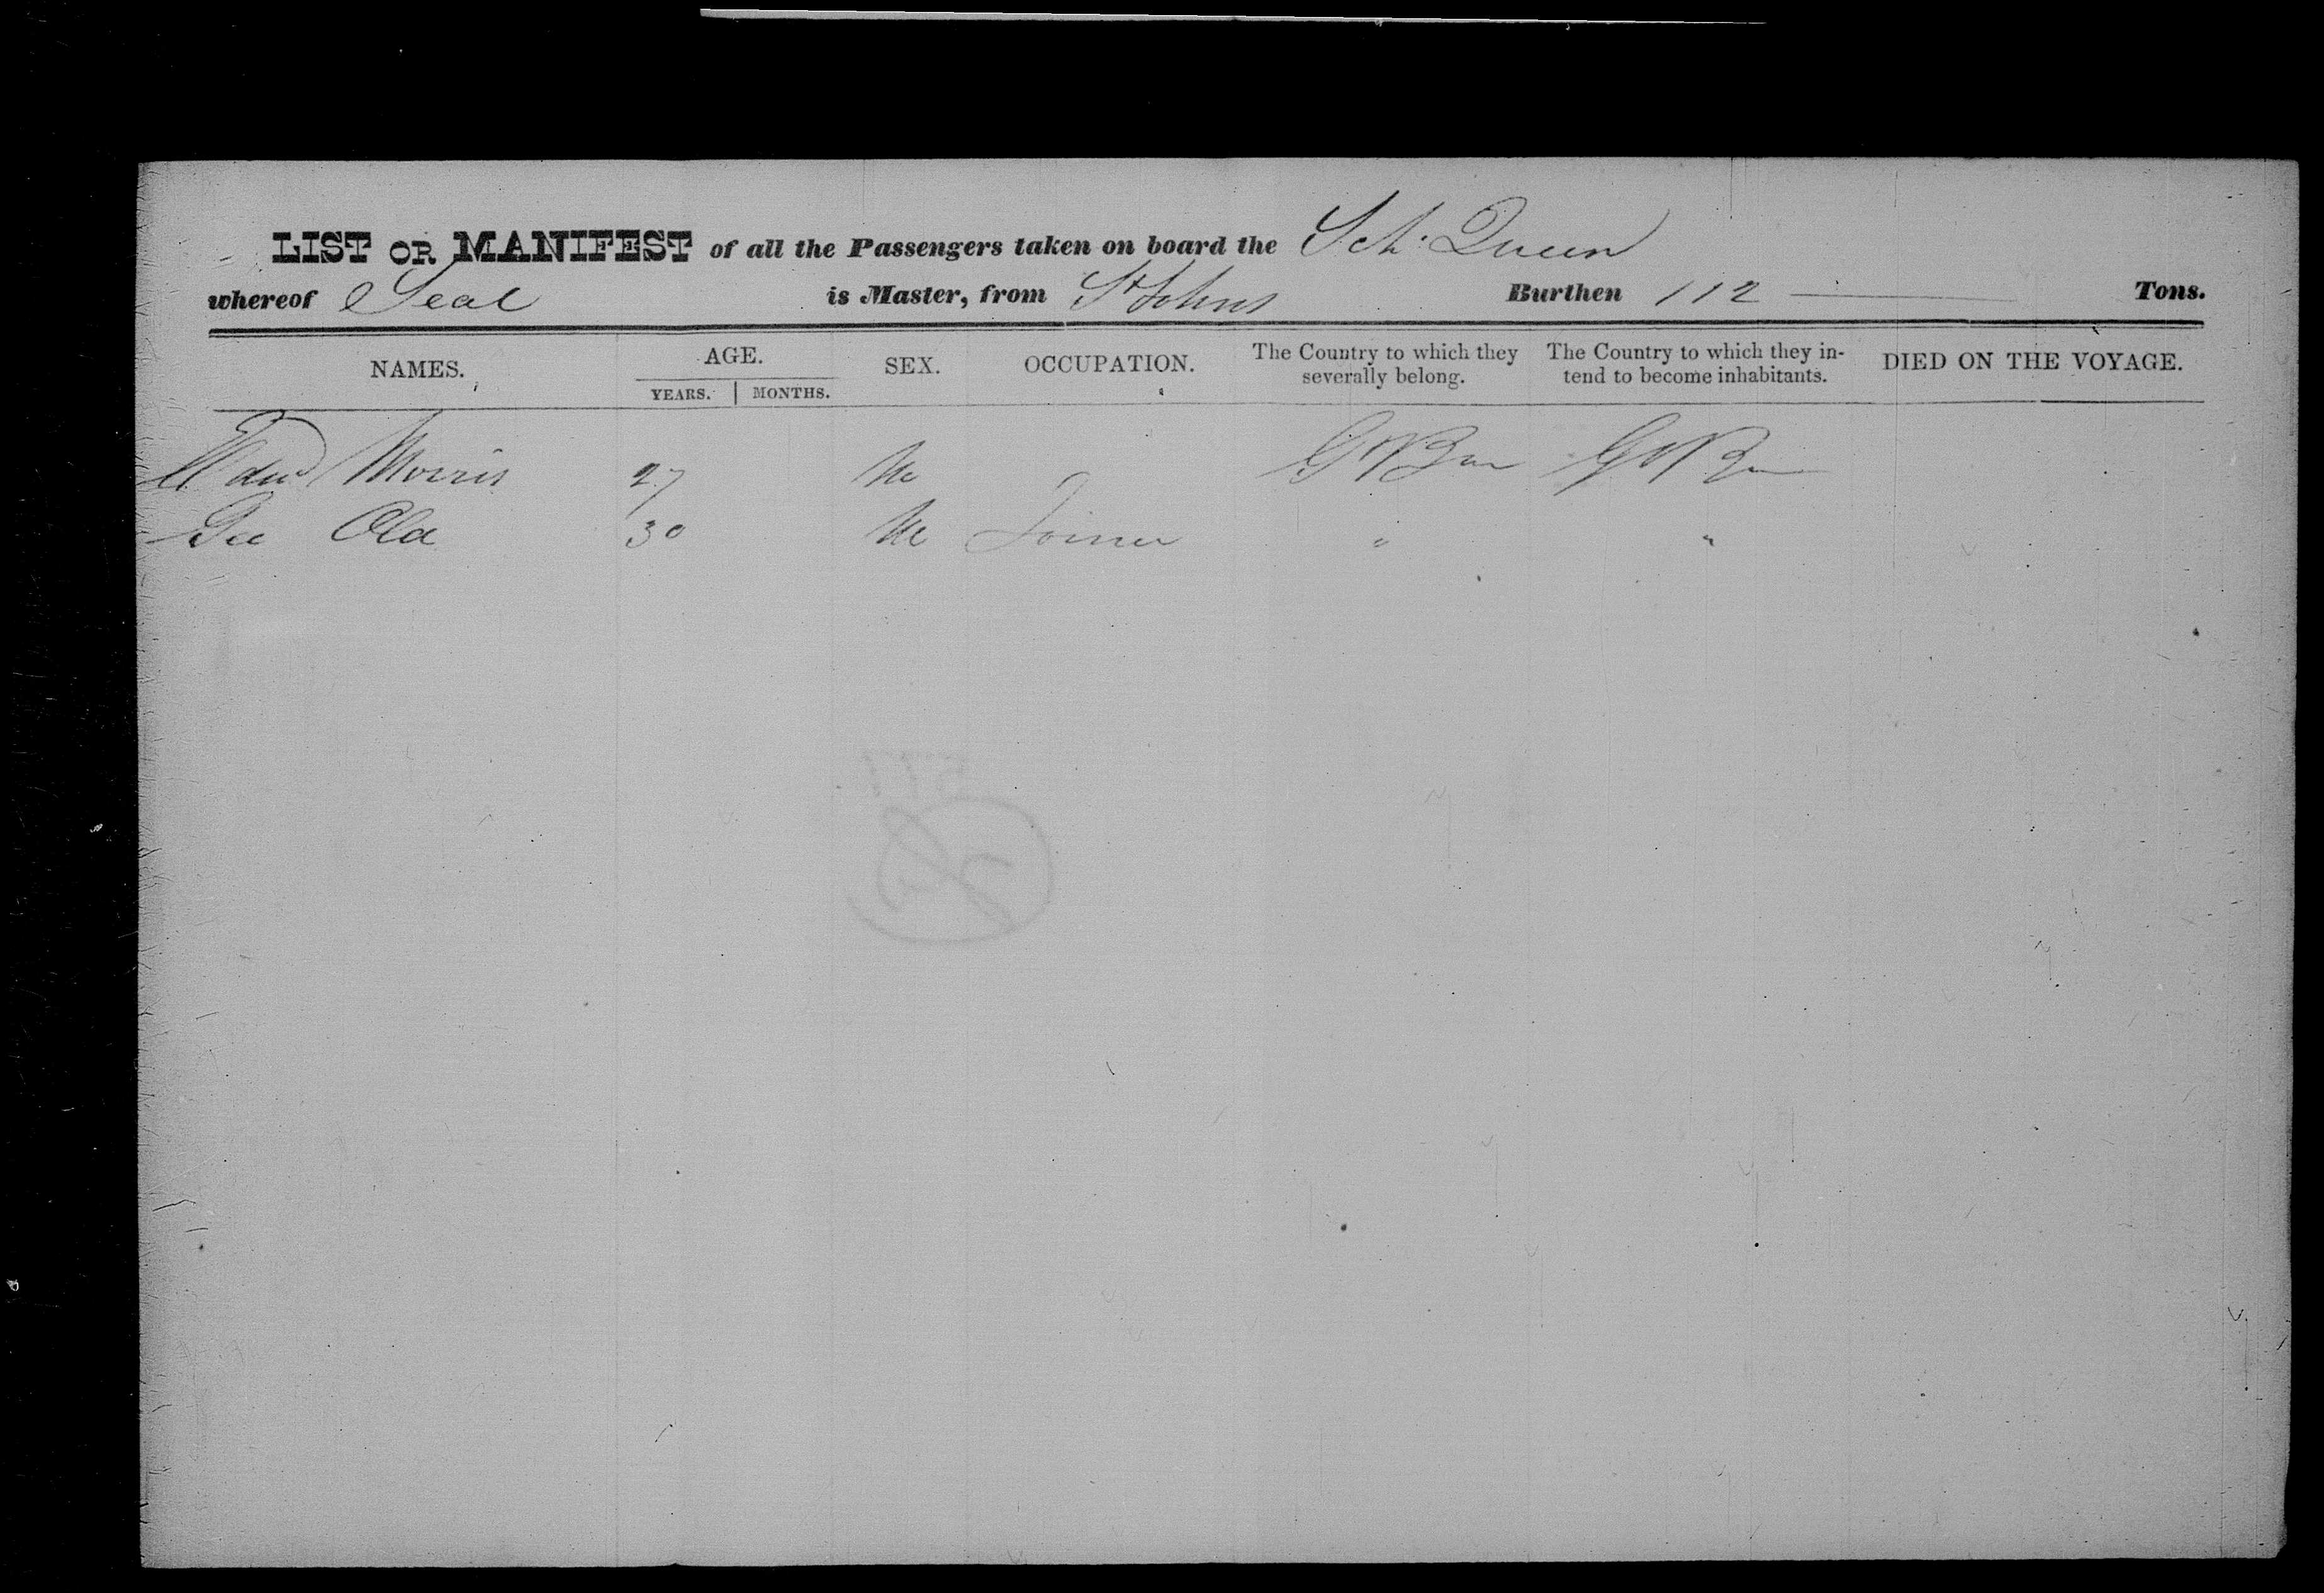 LIST OR MANIFEST of all the Passengers taken on board the Sch. Queen
whereof Seal is Master, from St Johns Burthen 112 Tons.
NAMES. AGE. SEX. OCCUPATION. The Country to which they severally belong. The Country to which they intend to become inhabitants. DIED ON THE VOYAGE.
YEARS. MONTHS.
Morris 27 M G Brn G Brn
Geo Old 30 M Joiner " "